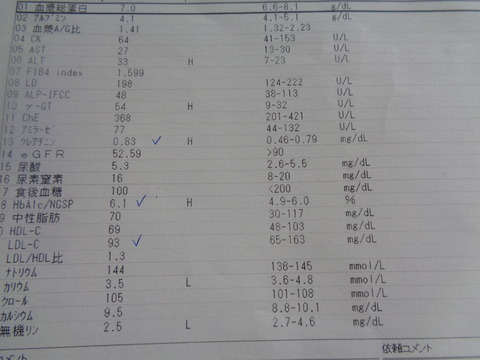 01 血漿総蛋白 7.0 6.6-8.1 g/dL
02 アルブミン 4.1 4.1-5.1 g/dL
03 血漿A/G比 1.41 1.32-2.23
04 CK 64 41-153 U/L
05 AST 27 13-30 U/L
06 ALT 33 H 7-23 U/L
07 FIB4 index 1.599
08 LD 198 124-222 U/L
09 ALP-IFCC 48 38-113 U/L
10 γ-GT 54 H 9-32 U/L
11 ChE 368 201-421 U/L
12 アミラーゼ 77 44-132 U/L
13 クレアチニン 0.83 ✓ H 0.46-0.79 mg/dL
14 eGFR 52.59 >90
15 尿酸 5.3 2.6-5.5 mg/dL
16 尿素窒素 16 8-20 mg/dL
17 食後血糖 100 <200 mg/dL
8 HbA1c/NGSP 6.1 ✓ H 4.9-6.0 %
9 中性脂肪 70 30-117 mg/dL
0 HDL-C 69 48-103 mg/dL
LDL-C 93 ✓ 65-163 mg/dL
LDL/HDL比 1.3
ナトリウム 144 138-145 mmol/L
カリウム 3.5 L 3.6-4.8 mmol/L
クロール 105 101-108 mmol/L
カルシウム 9.5 8.8-10.1 mg/dL
無機リン 2.5 L 2.7-4.6 mg/dL
依頼コメント